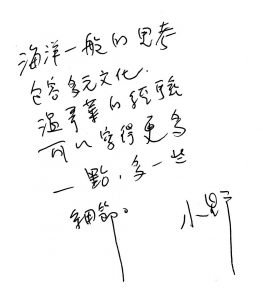 海洋一般的思考
包容多元文化.
溫哥華的經驗
可以寫得更多
一點，多一些
細節。
小野